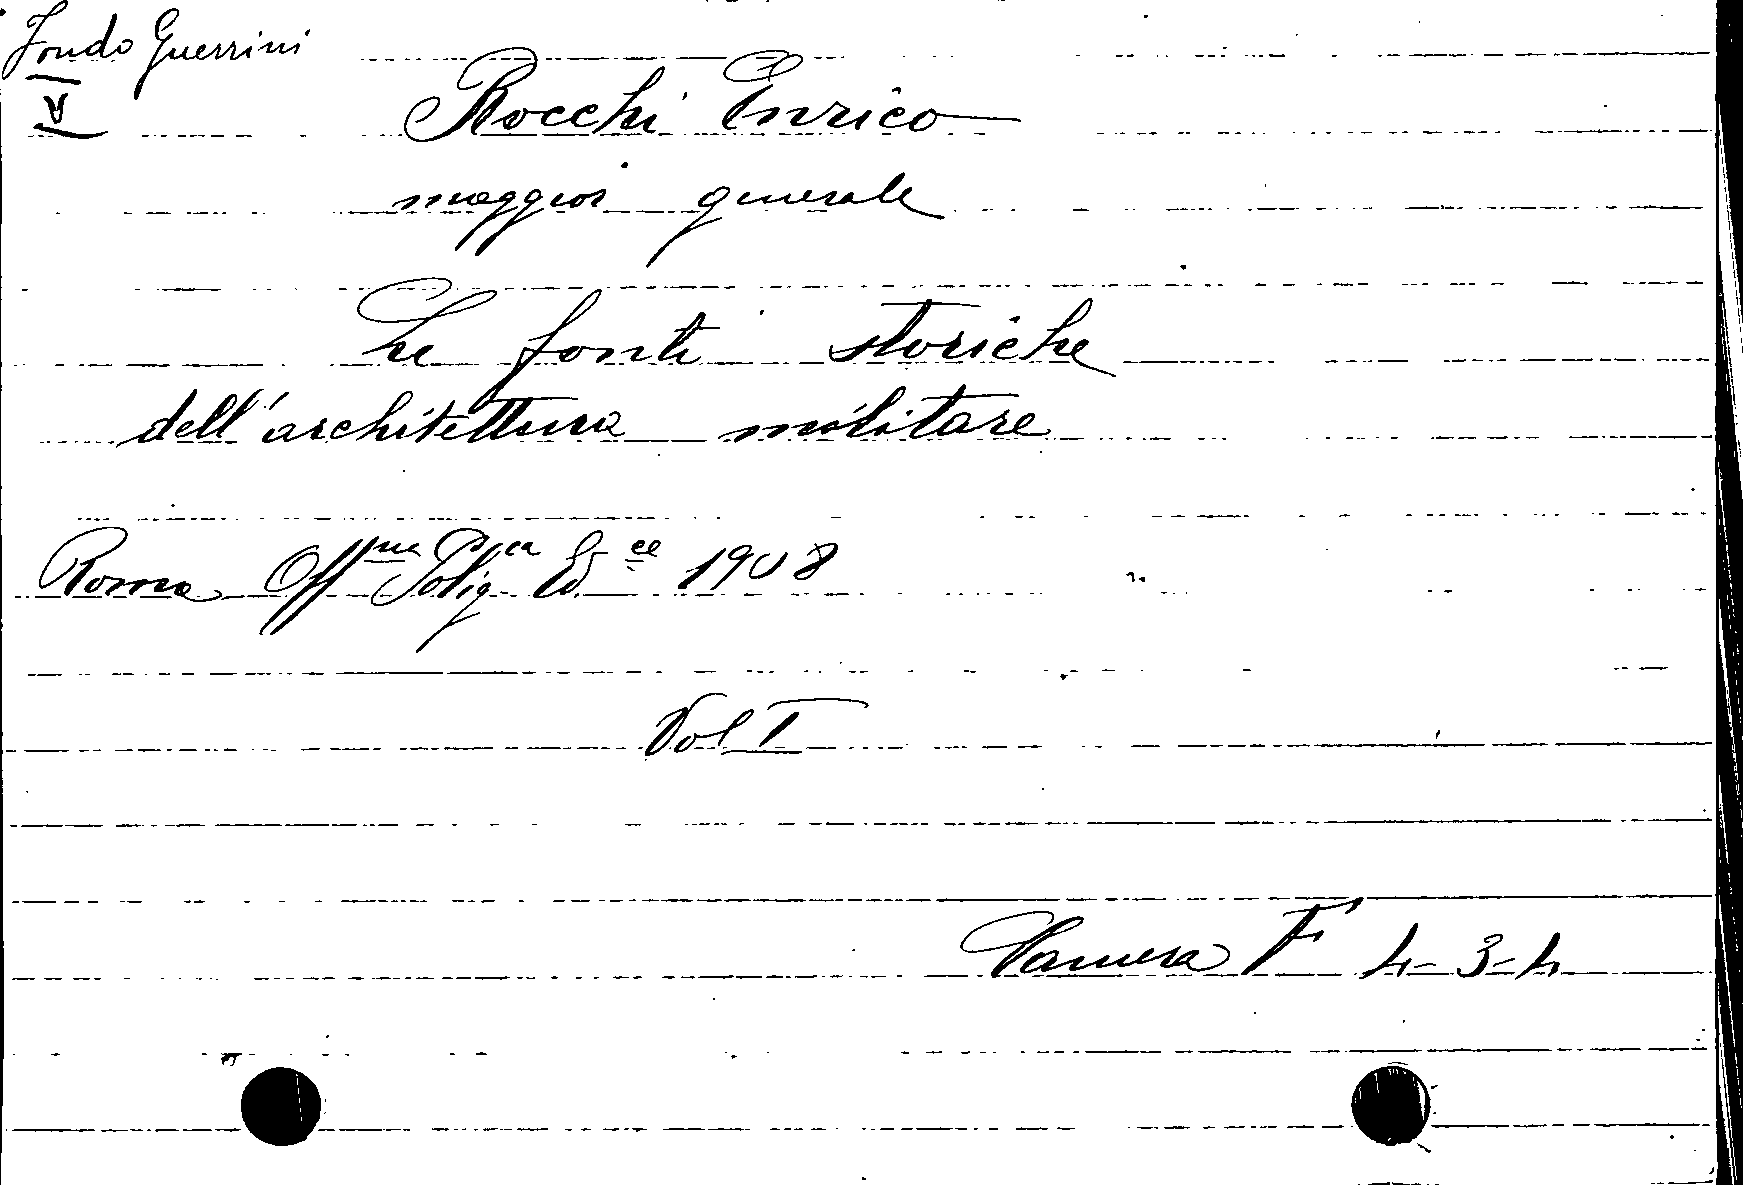 Fondo Guerrini
V
Rocchi Enrico
maggior generale
Le fonti storiche
dell'architettura militare
Roma Off.na Polig.ca Ed.ce 1908
Vol I
Camera F 4-3-4